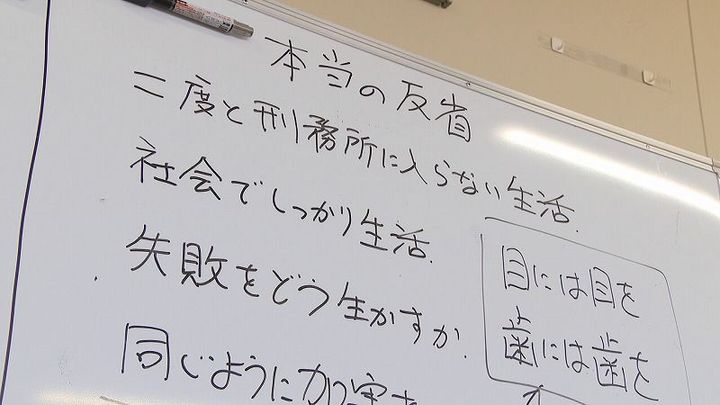 本当の反省
二度と刑務所に入らない生活.
社会でしっかり生活.
失敗をどう生かすか.
同じように加害
目には目を
歯には歯を